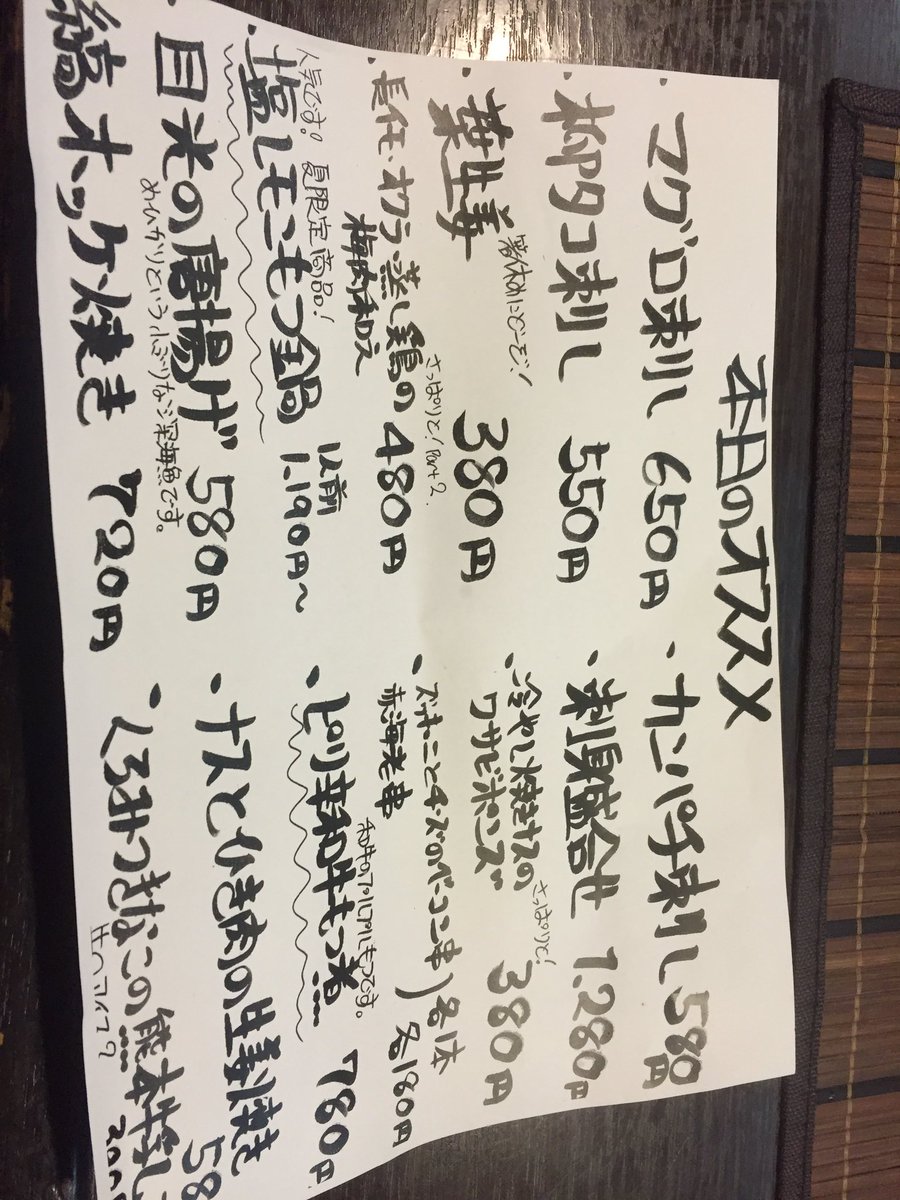 本日のオススメ
マグロ刺し 650円
・柳タコ刺し 550円
・葉生姜 380円
箸休めにどーぞ!
・長芋、オクラ、蒸し鶏の
梅肉和え 480円
さっぱりと! Part 2.
人気です! 夏限定商品!
・塩レモンもつ鍋 1人前 1.190円〜
・目光の唐揚げ 580円
めひかりという小ぶりな深海魚です。
縞ホッケ焼き 720円
・カンパチ刺し 580円
・刺身盛合せ 1.280円
・冷やし焼きナスの
ワサビポンズ 380円
さっぱりと!
・ズッキーニとチーズのベーコン串
赤海老串
各1本 各180円
・ピリ辛和牛もつ煮 780円
和牛のプルプルもつです。
・ナスとひき肉の生姜焼き 58